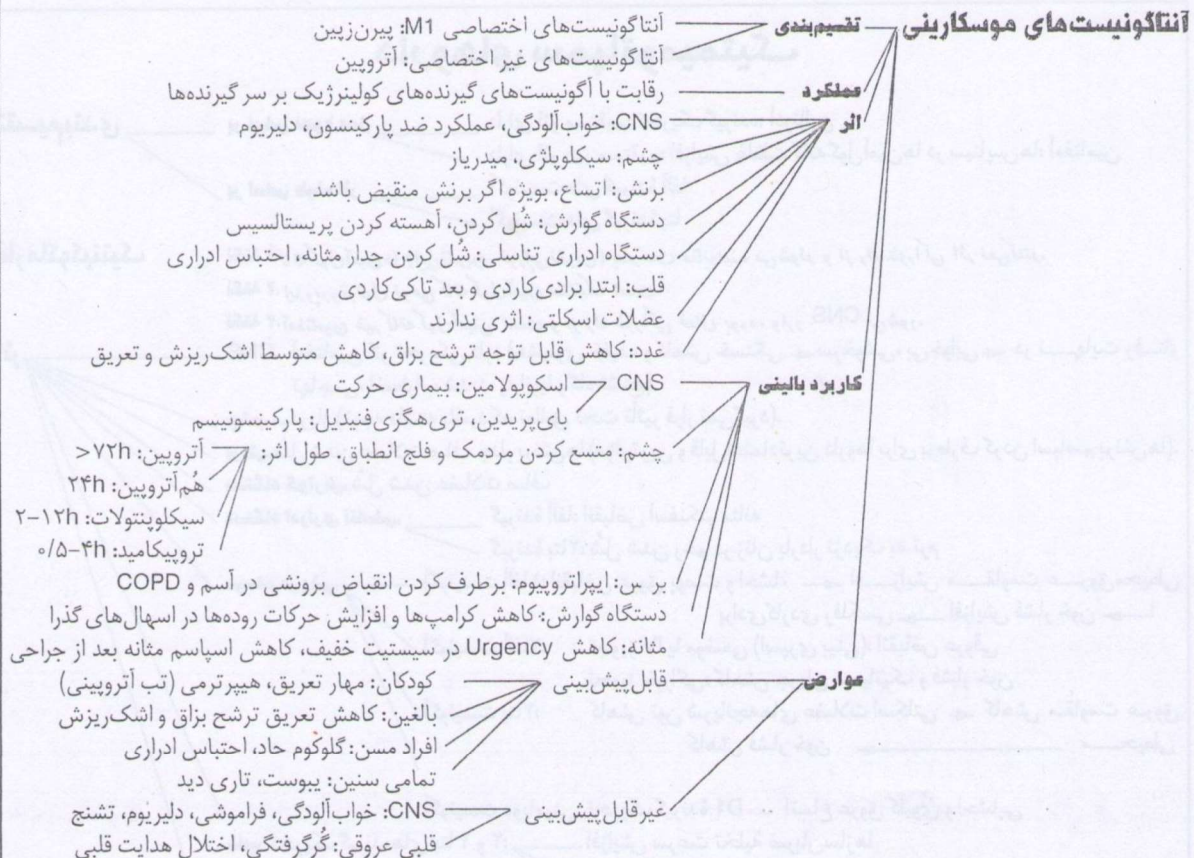 آنتاگونیست‌های موسکارینی
تقسیم‌بندی
آنتاگونیست‌های اختصاصی M1: پیرن‌زپین
آنتاگونیست‌های غیر اختصاصی: آتروپین
عملکرد
رقابت با آگونیست‌های گیرنده‌های کولینرژیک بر سر گیرنده‌ها
اثر
CNS: خواب‌آلودگی، عملکرد ضد پارکینسون، دلیریوم
چشم: سیکلوپلژی، میدریاز
برنش: اتساع، بویژه اگر برنش منقبض باشد
دستگاه گوارش: شُل کردن، آهسته کردن پریستالسیس
دستگاه ادراری تناسلی: شُل کردن جدار مثانه، احتباس ادراری
قلب: ابتدا برادی کاردی و بعد تاکی‌کاردی
عضلات اسکلتی: اثری ندارند
غدد: کاهش قابل توجه ترشح بزاق، کاهش متوسط اشک‌ریزش و تعریق
کاربرد بالینی
CNS
اسکوپولامین: بیماری حرکت
بی‌پریدین، تری‌هگزی‌فنیدیل: پارکینسونیسم
چشم: متسع کردن مردمک و فلج انطباق، طول اثر
آتروپین: ۷۲h<
هُم‌آتروپین: ۲۴h
سیکلوپنتولات: ۲–۱۲h
تروپیکامید: ۰/۵–۴h
برنش: ایپراتروپیوم: برطرف کردن انقباض برونشی در آسم و COPD
دستگاه گوارش: کاهش کرامپ‌ها و افزایش حرکات روده‌ها در اسهال‌های گذرا
مثانه: کاهش Urgency در سیستیت خفیف، کاهش اسپاسم مثانه بعد از جراحی
عوارض
قابل‌پیش‌بینی
کودکان: مهار تعریق، هیپرترمی (تب آتروپینی)
بالغین: کاهش تعریق ترشح بزاق و اشک‌ریزش
افراد مسن: گلوکوم حاد، احتباس ادراری
تمامی سنین: یبوست، تاری دید
غیرقابل‌پیش‌بینی
CNS: خواب‌آلودگی، فراموشی، دلیریوم، تشنج
قلبی عروقی: گُرگرفتگی، اختلال هدایت قلبی